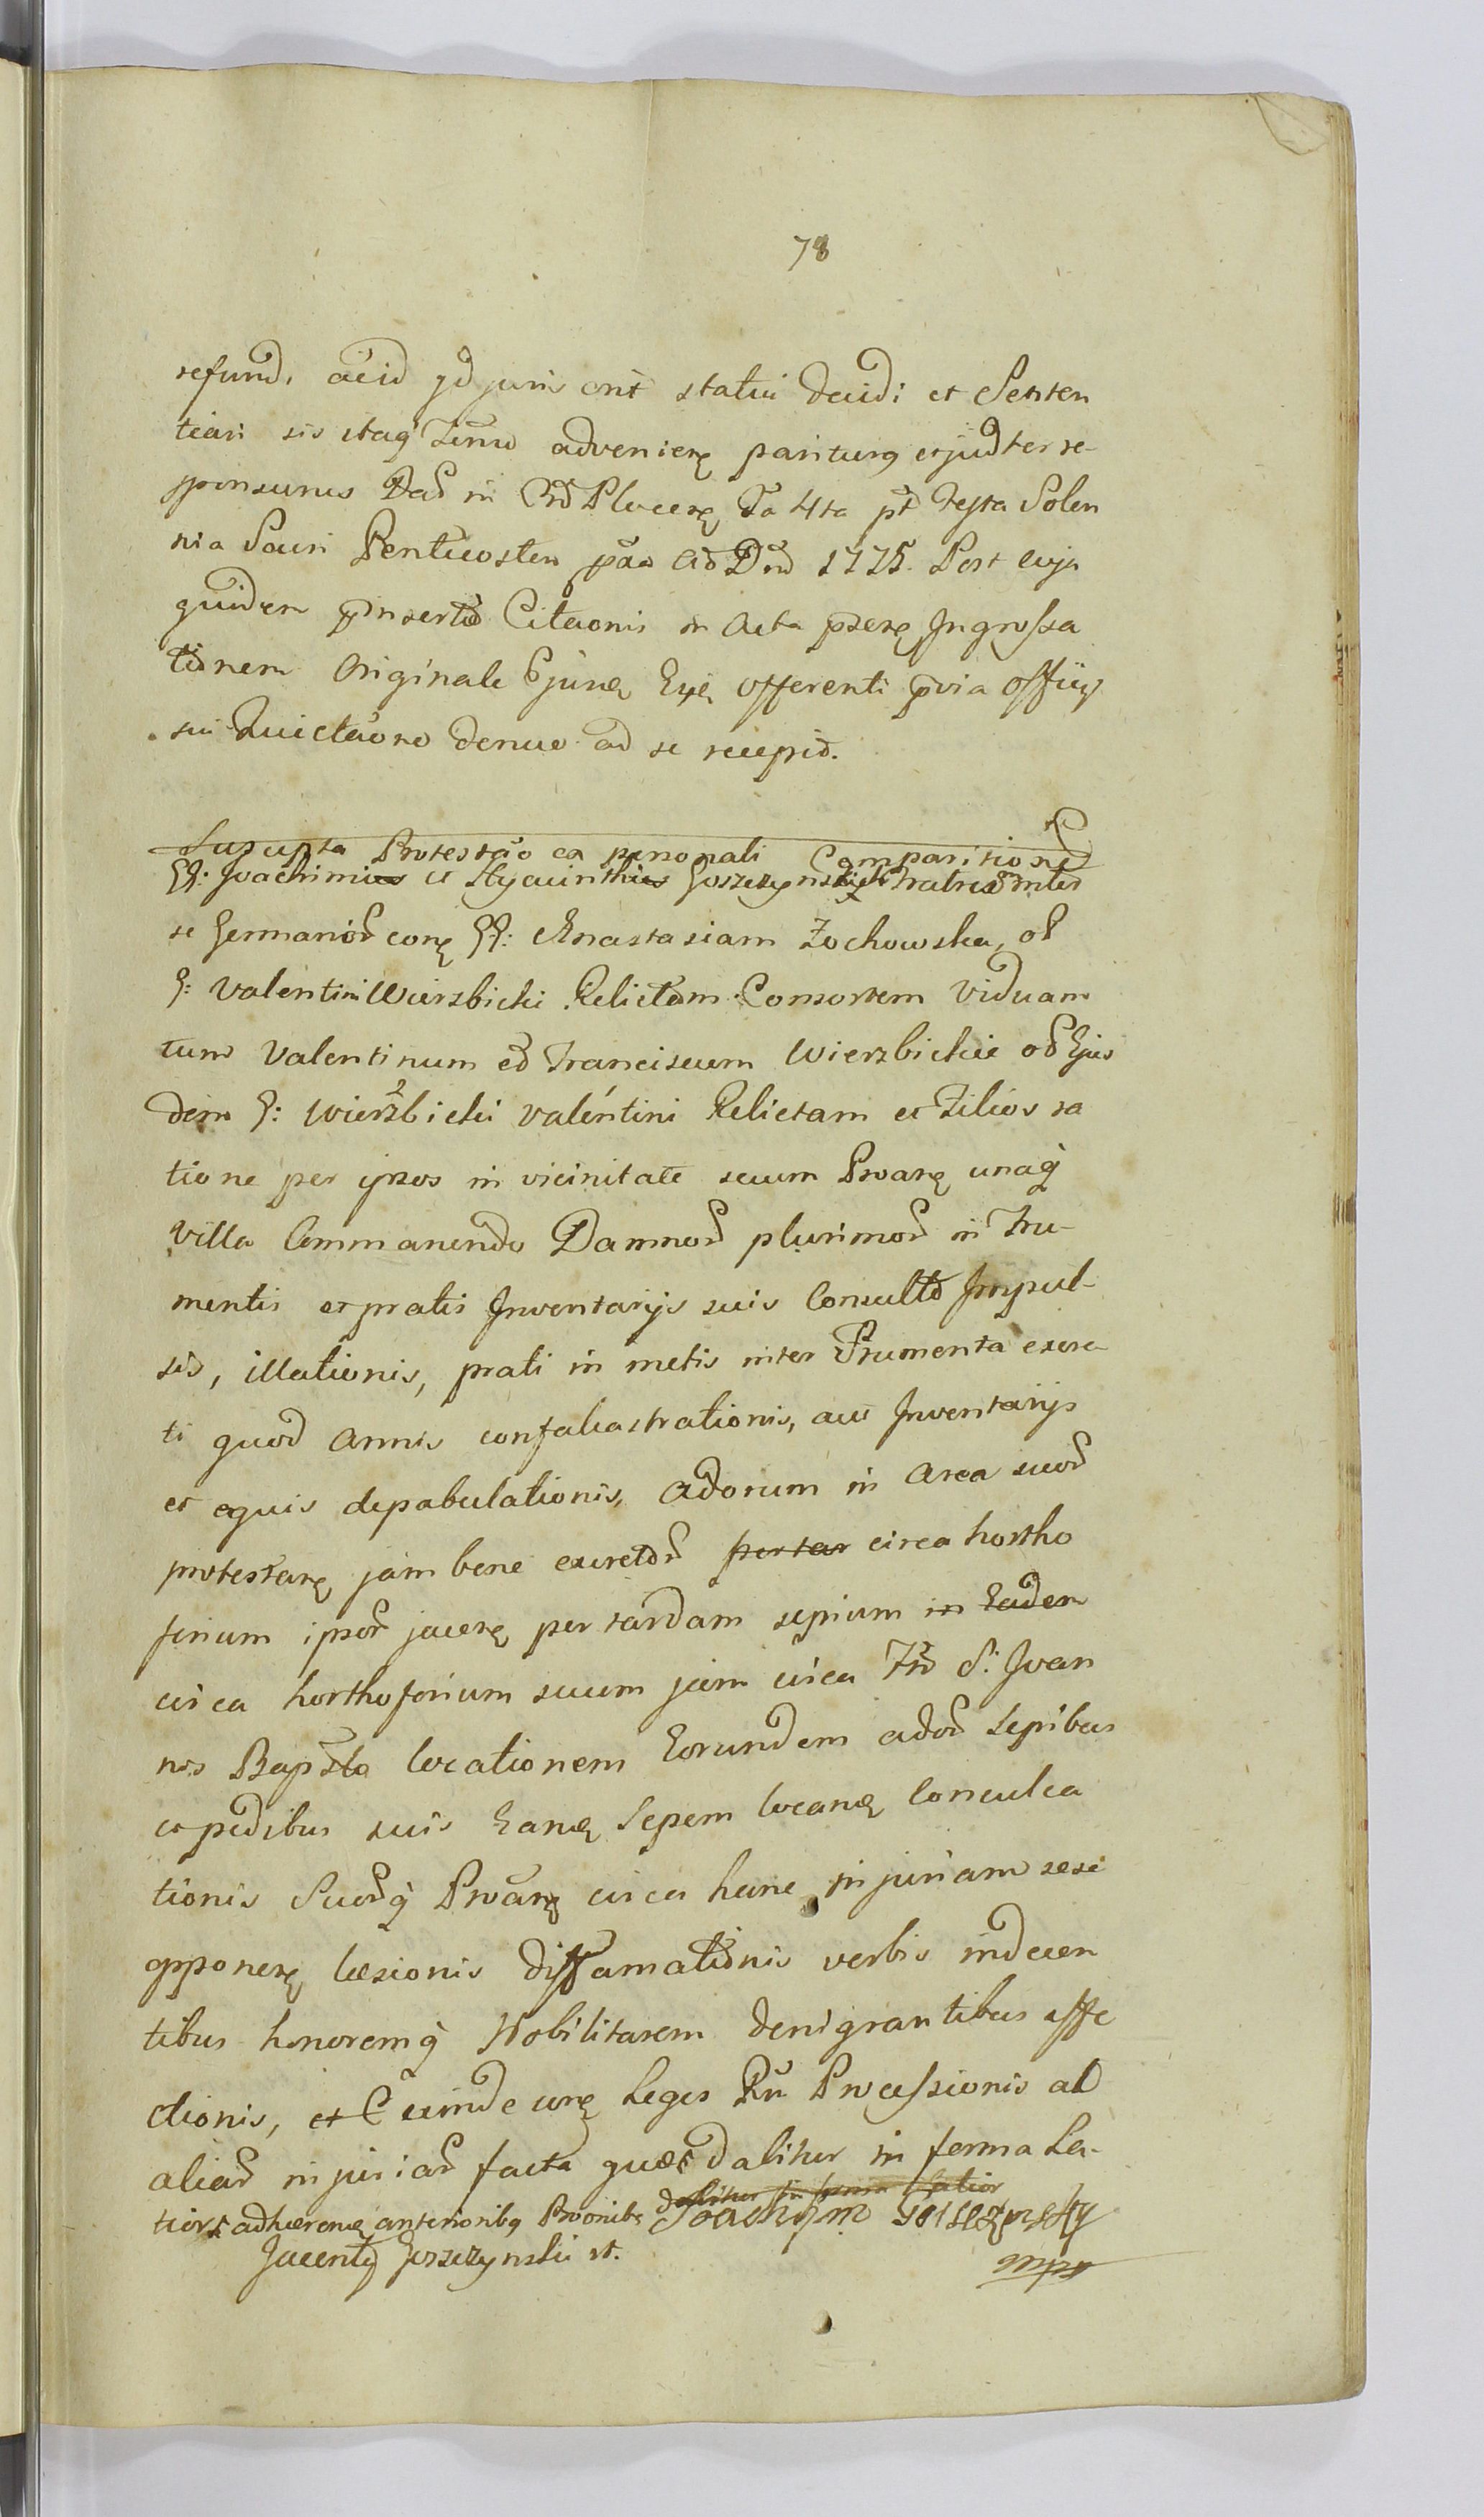 78
refund. acid qd juris erit statui decidi et Senten
tiari sis itaq Termo adveniene pariturq et judter re-
sponsurus Dad in Crd Plocene Fa 4ta pt Festa Solen
nia Sacri Pentecosten pxa AD Dnd 1775. Post cujq
quidem pinsertae Citaonis in Acta psene Ingrossa
tionem Originale Ejusne Exe offerenti pvia Officij
sui Quictaone denuo ad se recepit.
Suscepta Protestao ex personali Comparitione
GG: Joachimi et Hyacinthi Goszczynskich Fratrum inter
se Germanor cone GG: Anastasiam Zochowska, ol
G: Valentini Wierzbicki Relictam Consortem Viduam
tum Valentinum et Franciscum Wierzbickie ol Ejus
dem G: Wierzbicki Valentini Relictam et Filios ra
tione per ipsos in vicinitate secum Proane unaq
Villa Commanendo Damnor plurimor in Fru-
mentis et pratis Inventarijs suis Consulto Impul-
sis, illationis, prati in metis inter Frumenta exere
ti quod Annis confalcastrationis, aut Inventarijs
et equis depabulationis, Adorum in Area suor
protestane jam bene excretor circa hortho
forium ipsor jacene per tardam sepium
circa horthoforium suum jam circa Fn S: Joan
nis Bapsta locationem Eorundem ador Sepibus
et pedibus suis Eane Sepem locane Conculca
tionis Suorq Proane circa hanc injuriam sese
opponene laesionis diffamationis verbis indecen
tibus honoremq Nobilitarem denigrantibus affe
ctionis, et exinde cone Leges Rn Processionis al
aliar injuriar facta quae dabitur in forma La-
tiori adhaerene anterioribq Proonibs Joachijm Goszczynsky
mpp
Jacenty Goszczynski st.